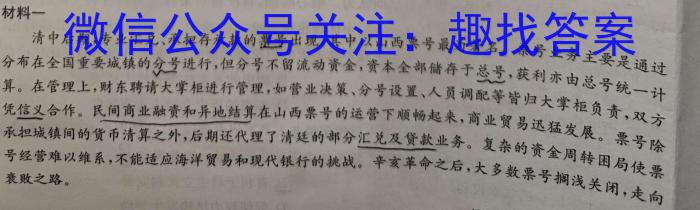 材料一
微信公众号关注：趣找答案
清中后 专业 承担存 的 号出现 其中 山西票号最 名 票号业务主要是通过
分布在全国重要城镇的分号进行，但分号不留流动资金，资本全部储存于总号，获利亦由总号统一计
算。在管理上，财东聘请大掌柜进行管理，如营业决策、分号设置、人员调配等皆归大掌柜负责，双方
凭信义合作。民间商业融资和异地结算在山西票号的运营下顺畅起来，商业贸易迅猛发展。票号除
承担城镇间的货币清算之外，后期还代理了清廷的部分汇兑及贷款业务。复杂的资金周转困局使票
号经营难以维系，不能适应海洋贸易和现代银行的挑战。辛亥革命之后，大多数票号搁浅关闭，走向
衰败之路。